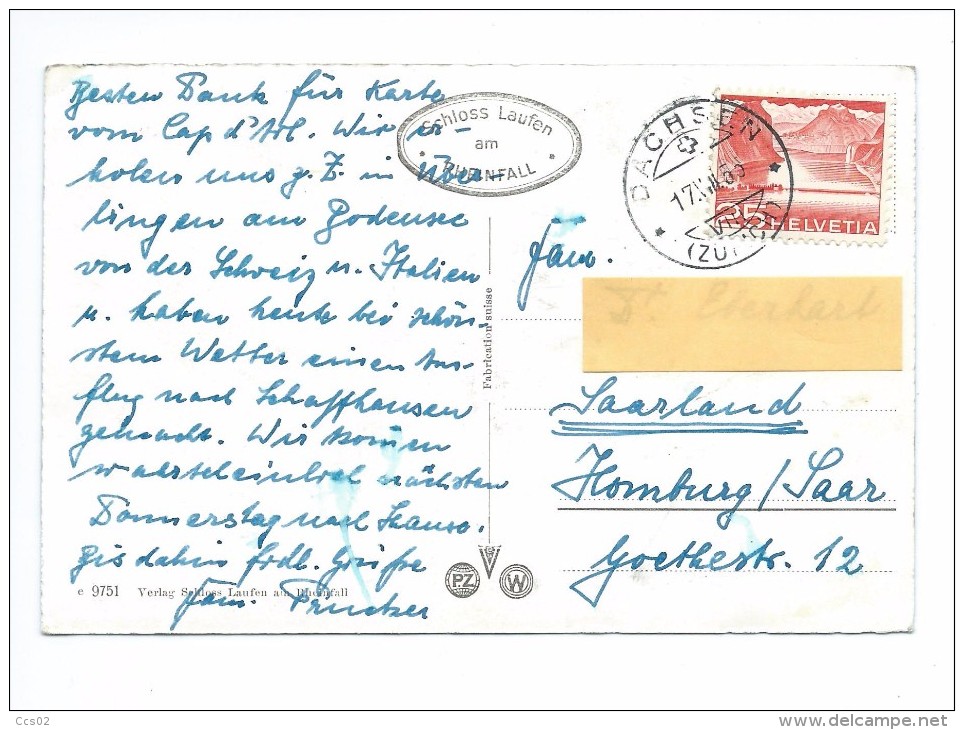 Besten Dank für Karte
vom Cap d'Ail. Wir er-
holen uns z. Z. in Über-
lingen am Bodensee
von der Schweiz u. Italien
u. haben heute bei schön-
stem Wetter einen Aus-
flug nach Schaffhausen
gemacht. Wir kommen
wahrscheinlich nächsten
Donnerstag nach Hause.
Bis dahin frdl. Grüße
Fam.
c 9751 Verlag Schloss Laufen am Rheinfall
Schloss Laufen
am
RHEINFALL
Fabrication suisse
PZ
W
DACHSEN
(ZÜRICH)
25 HELVETIA
Fam.
Dr. Eberhart
Saarland
Homburg/Saar
Goethestr. 12
Ccs02
www.delcampe.net